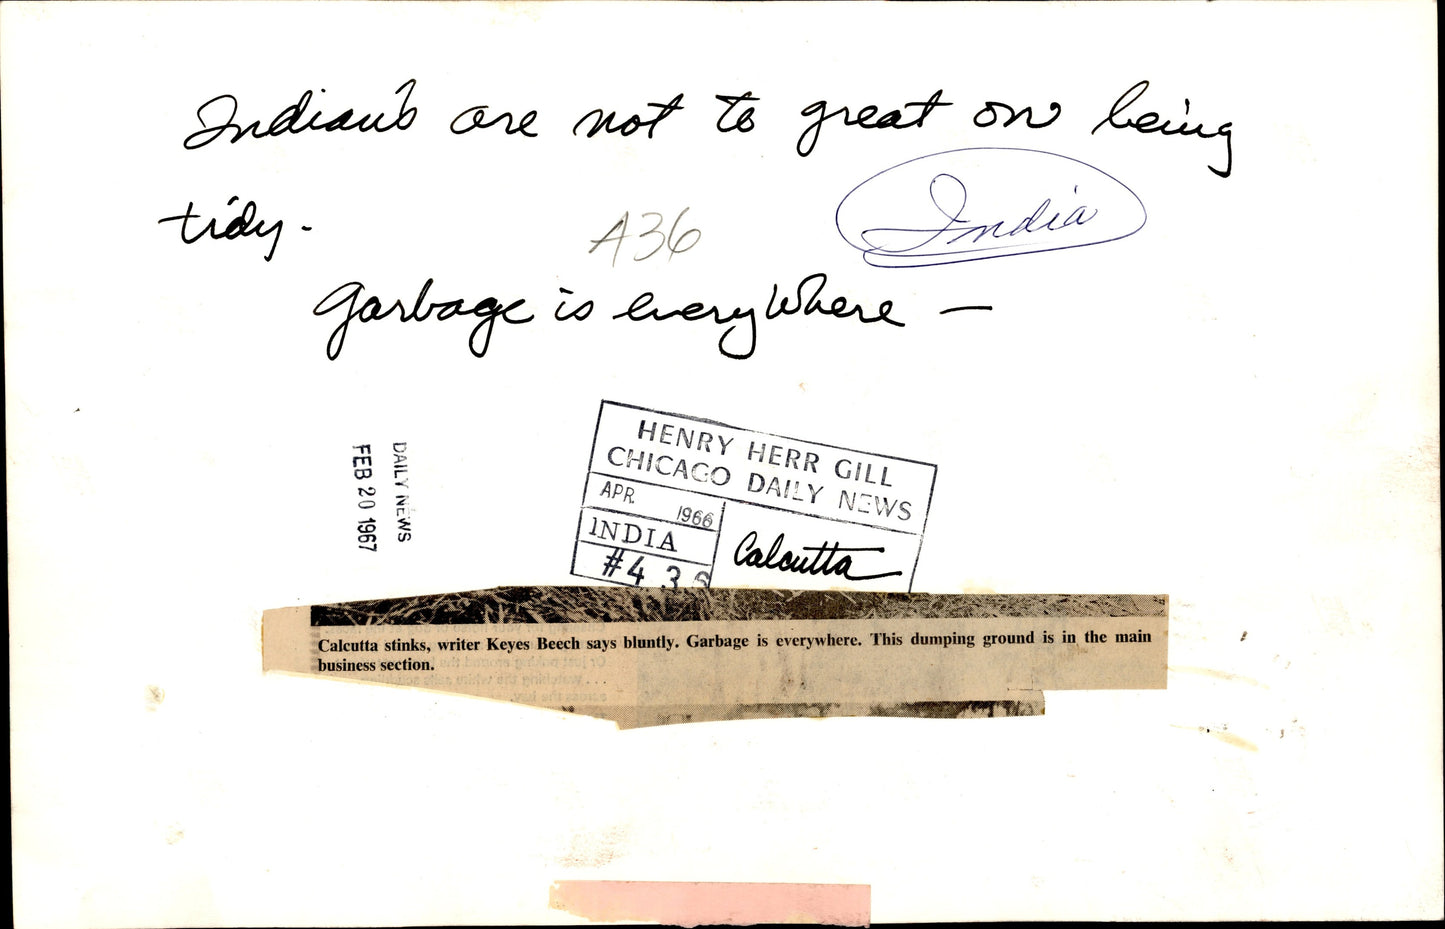 Indian's are not to great on being
tidy.
India
A36
Garbage is everywhere —
DAILY NEWS
FEB 20 1967
HENRY HERR GILL
CHICAGO DAILY NEWS
APR. 1966
INDIA
Calcutta
#436
Calcutta stinks, writer Keyes Beech says bluntly. Garbage is everywhere. This dumping ground is in the main
business section.